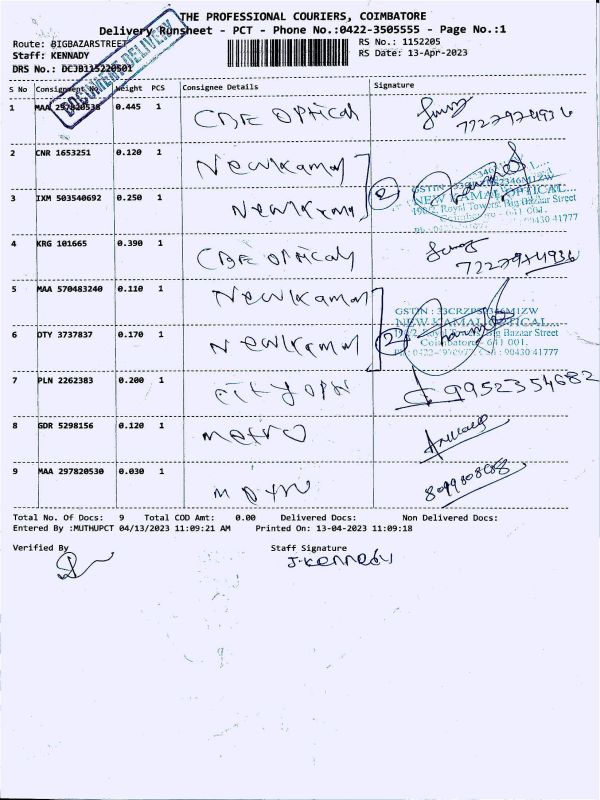 THE PROFESSIONAL COURIERS, COIMBATORE
Delivery Runsheet - PCT - Phone No.:0422-3505555 - Page No.:1
Route: BIGBAZARSTREET
RS No.: 1152205
Staff: KENNADY
RS Date: 13-Apr-2023
DRS No.: DCJB115220501
DOCUMENT DELIVERY
S No Consignment No Weight PCS Consignee Details Signature
1 MAA 297820538 0.445 1 CBE OPtical
7727974936
2 CNR 1653251 0.120 1 Newkamal
3 IXM 503540692 0.250 1 Newkamal
2
NEW KAMAL OPTICAL
Royal Towers, Big Bazaar Street
Coimbatore - 641 001.
90430 41777
4 KRG 101665 0.390 1 CBE OPtical
7727974936
5 MAA 570483240 0.110 1 Newkamal
6 DTY 3737837 0.170 1 Newkamal
2
GSTIN : 33CRZPS2346M1ZW
NEW KAMAL OPTICAL
Royal Towers, Big Bazaar Street
Coimbatore - 641 001.
Cell : 90430 41777
7 PLN 2262383 0.200 1 city OPti
9952354682
8 GDR 5298156 0.120 1 metro
9 MAA 297820530 0.030 1
Total No. Of Docs: 9 Total COD Amt: 0.00 Delivered Docs: Non Delivered Docs:
Entered By :MUTHUPCT 04/13/2023 11:09:21 AM Printed On: 13-04-2023 11:09:18
Verified By Staff Signature
J.KENNEDY